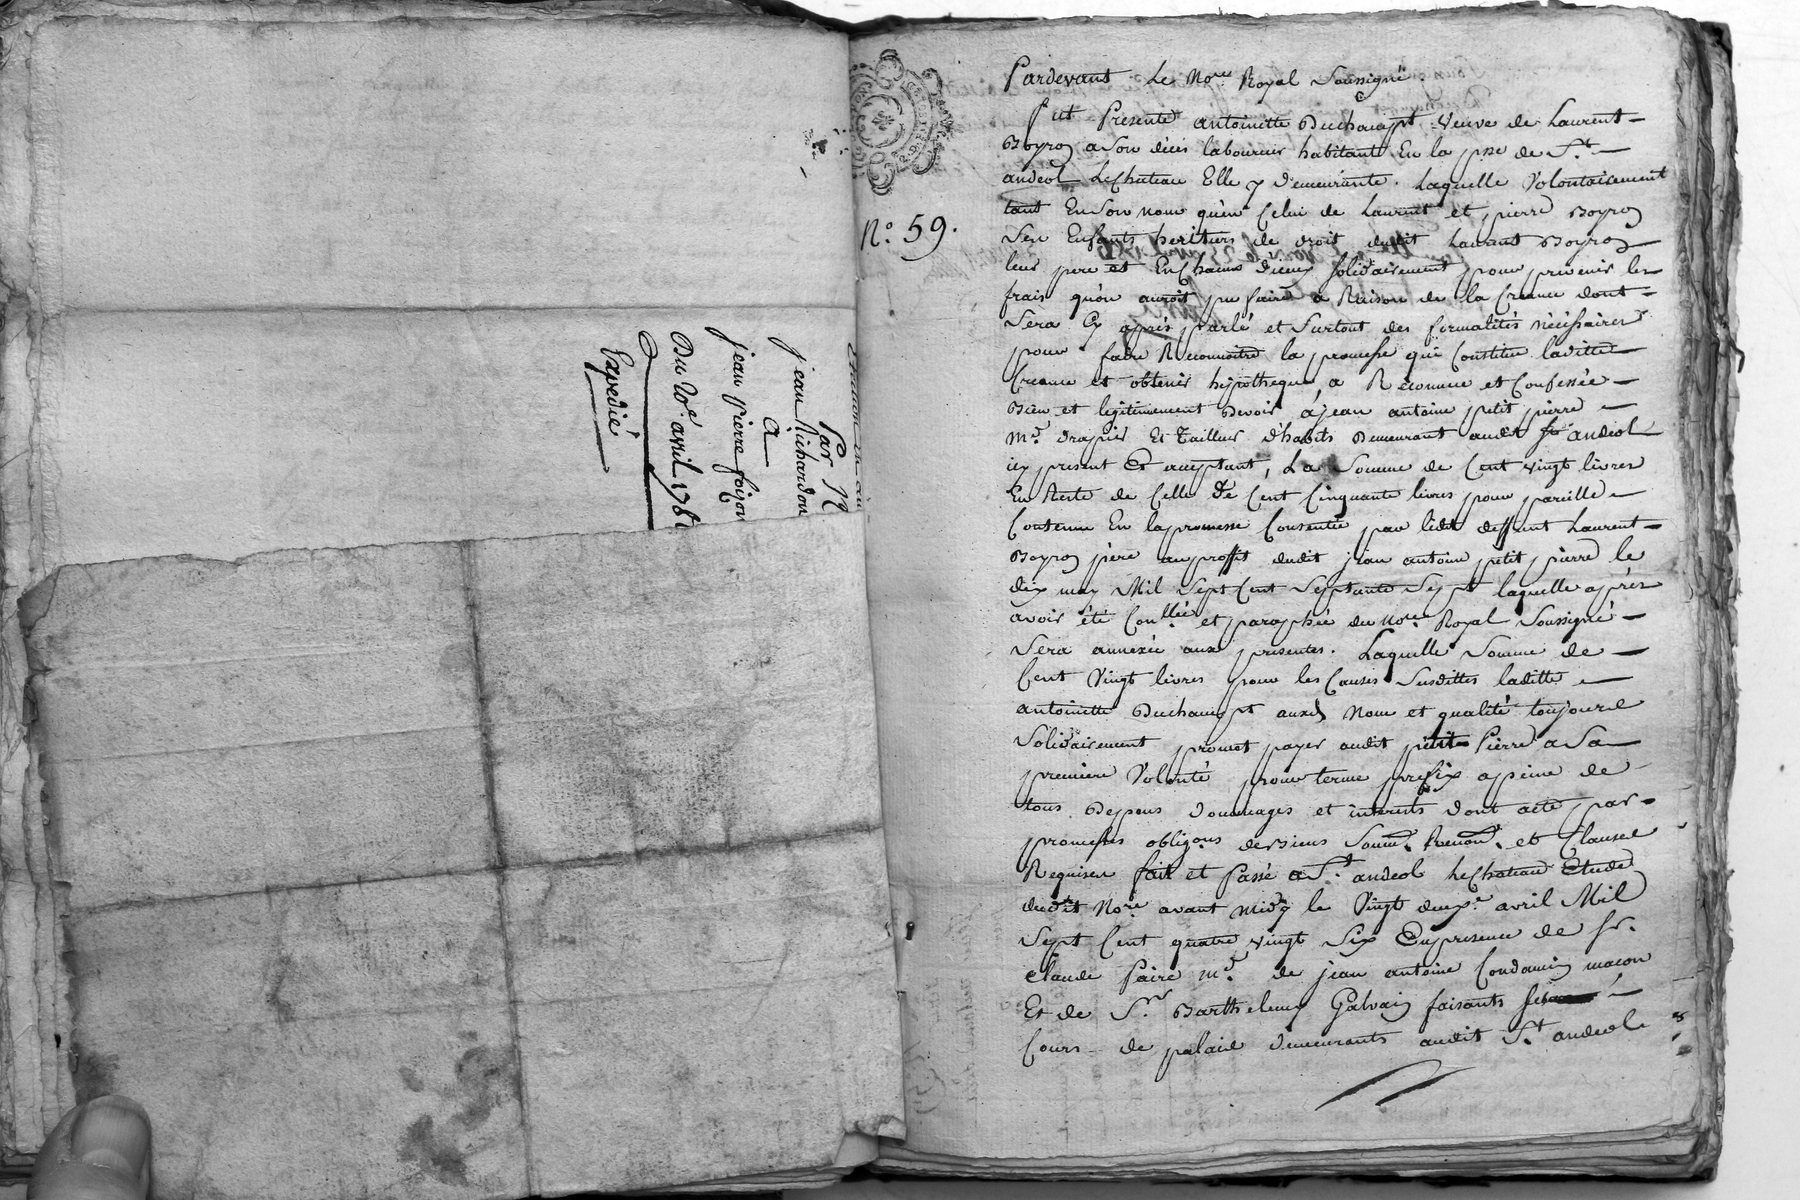 Par Sr
jean Richardon
a
jean pierre foizon
Du 20e. avril 178
Expedié
No. 59.
Pardevant Le Nore Royal Soussigné
fut Presente antoinette Duchampt veuve de Laurent
Boyron a Son déces laboureur habitante En la psse de St.
andeol LeChateau Elle y demeurante. Laquelle Volontairement
tant En Son nom qu'en Celui de Laurent et pierre Boyron
Ses Enfants heritiers de droit dudit Laurent Boyron
leur pere et Enchacun d'ieux Solidairement pour prevenir les
frais qu'on auroit pu faire a Raison de la Creance dont
Sera Cy après parlé et Surtout des formalités nécéssaires
pour faire Reconnoitre la promesse qui Constitue laditte
Creance et obtenir hypotheque, a Reconnue et Confessée
Bien et legitimement Devoir à jean antoine petit pierre
md. drapier Et Tailleur d'habits Demeurant audit St andeol
icy present Et acceptant, La Somme de Cent vingt livres
En Reste de Celle De Cent Cinquante livres pour pareille
Contenue En lapromesse Consentie par ledit deffunt Laurent
Boyron père auproffit dudit jean antoine petit pierre le
dix may Mil Sept Cent Septante Sept laquelle après
avoir été Conllée et paraphée du Nore Royal Soussigné
Sera annéxée aux presentes. Laquelle Somme de
Cent Vingt livres pour les Causes Susdittes laditte
antoinette Duchampt auxd Nom et qualité toujours
Solidairement promet payer audit petit Pierre a Sa
premiere Volonté pour terme prefix apeine de
tous Depens dommages et interets dont acte par
promesses obligons. de Ses biens Soum. Renon. et Clauses
Requises fait et Passé a St. andeol LeChateau Etude
dudit Nore. avant midy le Vingt deuxe. avril Mil
Sept Cent quatre vingt Six Enpresence de Sr.
Claude Faire md. de jean antoine Condamin macon
Et de Sr. Barthelemy Galvain faisants
Cours de palais demeurants audit St. andeol